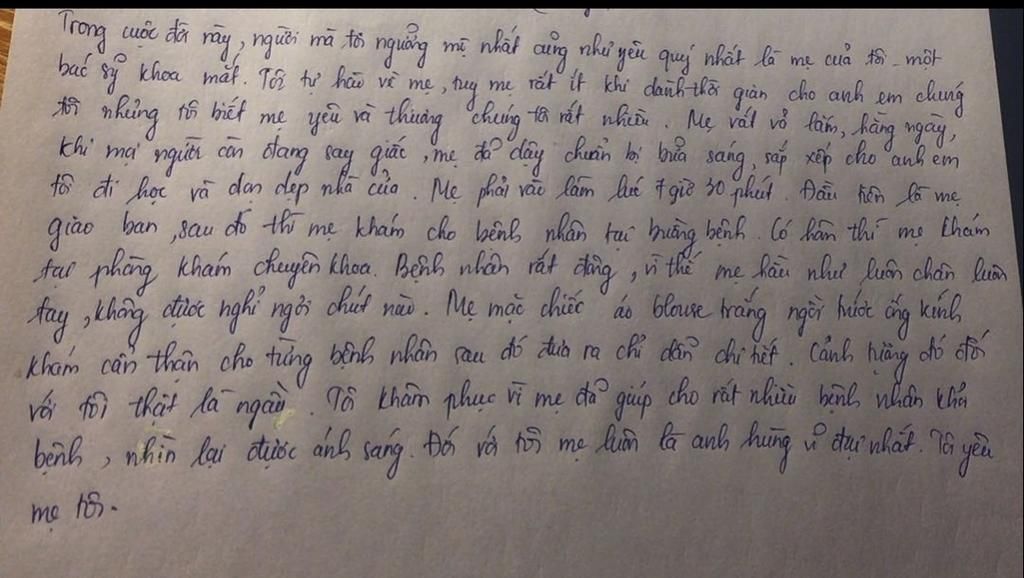 Trong cuộc đời này, người mà tôi ngưỡng mộ nhất cũng như yêu quý nhất là mẹ của tôi - một
bác sỹ khoa mắt. Tôi tự hào về mẹ, tuy mẹ rất ít khi dành thời gian cho anh em chúng
tôi nhưng tôi biết mẹ yêu và thương chúng tôi rất nhiều. Mẹ vất vả lắm, hằng ngày,
khi mọi người còn đang say giấc, mẹ đã dậy chuẩn bị bữa sáng, sắp xếp cho anh em
tôi đi học và dọn dẹp nhà cửa. Mẹ phải vào làm lúc 7 giờ 30 phút. Đầu tiên là mẹ
giao ban, sau đó thì mẹ khám cho bệnh nhân tại buồng bệnh. Có hôm thì mẹ khám
tại phòng khám chuyên khoa. Bệnh nhân rất đông, vì thế mẹ hầu như luôn chân luôn
tay, không được nghỉ ngơi chút nào. Mẹ mặc chiếc áo blouse trắng ngồi trước ống kính
khám cẩn thận cho từng bệnh nhân sau đó đưa ra chỉ dẫn chi tiết. Cảnh tượng đó đối
với tôi thật là ngầu. Tôi khâm phục vì mẹ đã giúp cho rất nhiều bệnh nhân khỏi
bệnh, nhìn lại được ánh sáng. Đối với tôi mẹ luôn là anh hùng vĩ đại nhất. Tôi yêu
mẹ tôi.